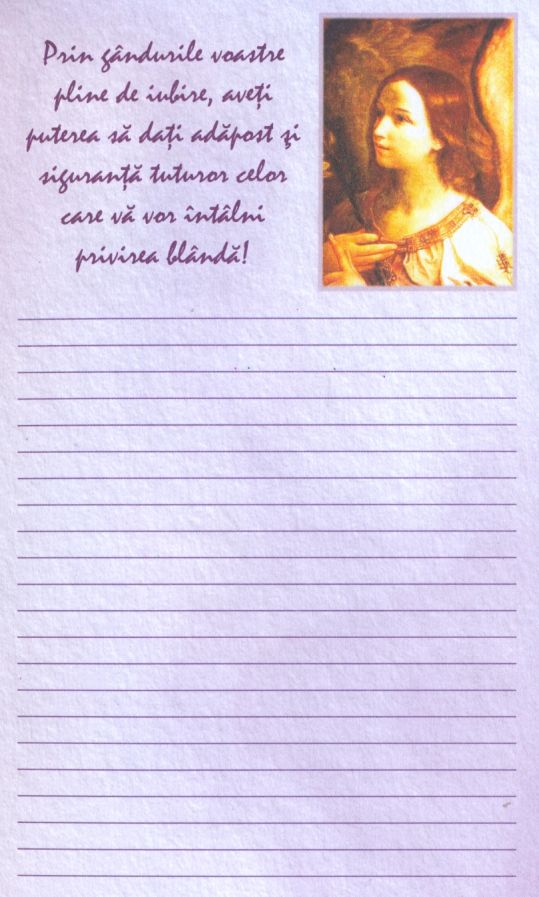 Prin gândurile voastre
pline de iubire, aveți
puterea să dați adăpost şi
siguranță tuturor celor
care vă vor întâlni
privirea blândă!